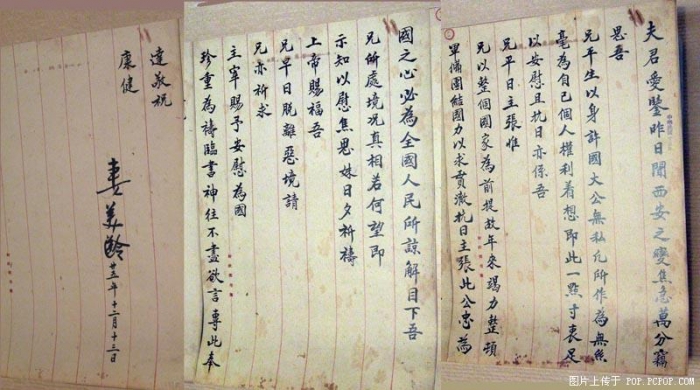 夫君愛鑒昨日聞西安之變焦急萬分竊
思吾
兄平生以身許國大公無私凡所作為無絲
毫為自己個人權利着想即此一點寸衷足
以安慰且抗日亦係吾
兄平日主張惟
兄以整個國家為前提故年來竭力整頓
軍備團結國力以求貫澈抗日主張此公忠為
國之心必為全國人民所諒解目下吾
兄所處境況真相若何望即
示知以慰焦思妹日夕祈禱
上帝賜福吾
兄早日脫離惡境請
兄亦祈求
主宰賜予安慰為國
珍重為禱臨書神往不盡欲言專此奉
達敬祝
康健
妻美齡 廿五年十二月十三日
图片上传于 POP.PCPOP.COM